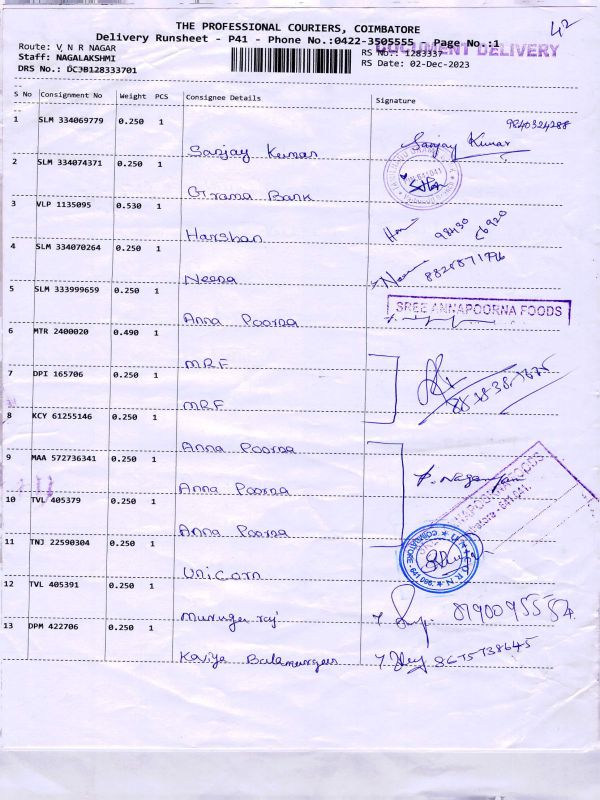 42
THE PROFESSIONAL COURIERS, COIMBATORE
Delivery Runsheet - P41 - Phone No.:0422-3505555 - Page No.:1
DOCUMENT DELIVERY
Route: V N R NAGAR RS No.: 1283337
Staff: NAGALAKSHMI RS Date: 02-Dec-2023
DRS No.: DCJB128333701
S No Consignment No Weight PCS Consignee Details Signature
1 SLM 334069779 0.250 1 Sanjay Kumar Sanjay Kumar 9840324288
2 SLM 334074371 0.250 1 Grama Bank
3 VLP 1135095 0.530 1 Harshan 98430 26920
4 SLM 334070264 0.250 1 Neena Neena
5 SLM 333999659 0.250 1 Anna Poorna SREE ANNAPOORNA FOODS
6 MTR 2400020 0.490 1 MRF
7 DPI 165706 0.250 1 MRF
8 KCY 61255146 0.250 1 Anna Poorna
9 MAA 572736341 0.250 1 Anna Poorna
10 TVL 405379 0.250 1 Anna Poorna
11 TNJ 22590304 0.250 1 Unicorn
12 TVL 405391 0.250 1 Murugaraj
13 DPM 422706 0.250 1 Kaviya Balamurugan 8675738645